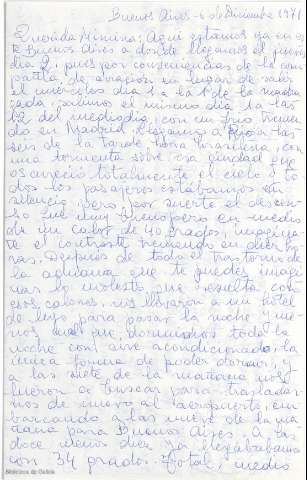 Buenos Aires - 6 de Diciembre 1971
Querida Minina: Aquí estamos ya en es
te Buenos Aires a donde llegamos el jueves
día 2, pues por conveniencias de la com
pañía, de aviación en lugar de salir
el miércoles día 1 a la 1 de la madru
gada, salimos el mismo día 1 a las
12 del mediodía, con un frío tremen
do en Madrid. Llegamos a Río a las
seis de la tarde hora brasileña, con
una tormenta sobre esa ciudad que
oscureció totalmente el cielo y to
dos los pasajeros estábamos en
silencio pero, por suerte el descen
so fue muy bueno pero en medio
de un calor de 40 grados, imagína
te el contraste tremendo en diez ho
ras. Después de todo el trastorno de
la aduana que te puedes imagi
nar lo molesto que resulta con
esos calores, nos llevaron a un hotel
de lujo para pasar la noche y me
nos mal que dormimos toda la
noche con aire acondicionado, la
única forma de poder dormir, y
a las siete de la mañana nos
fueron a buscar para trasladar
nos de nuevo al aeropuerto, em
barcando a las nueve de la ma
ñana para Buenos Aires. A las
doce menos diez ya llegábamos
con 34 grados. Total, medio
Biblioteca de Galicia